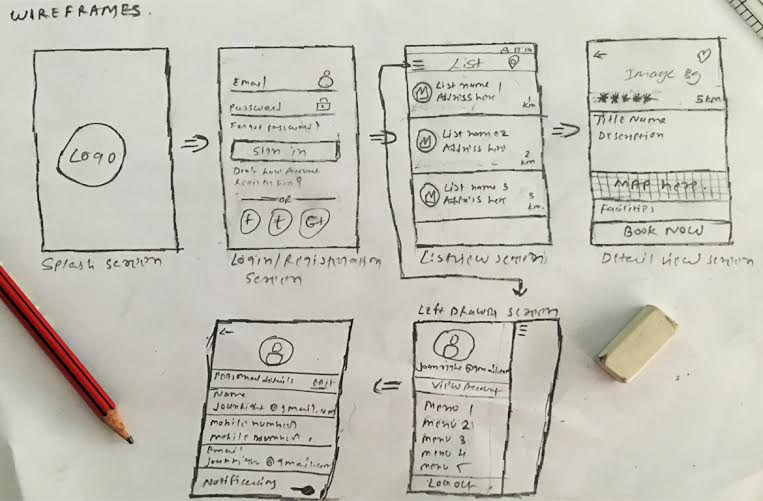 WIREFRAMES.
LOGO
Splash screen
Email
Password
Forgot password?
Sign in
Don't have Account
Registration?
OR
f
t
G+
Login/Registration
Screen
List
M
List name 1
Address here
1
km
M
List name 2
Address here
2
km
M
List name 3
Address here
3
km.
Listview screen
Image Bg
*****
5km
Title Name
Description
MAP here.
Facilities
BOOK NOW
Detail view screen
Left Drawer screen
View Account
Menu 1
menu 2
menu 3
menu 4
menu 5
LOGOUT
Personal details
edit
Name
mobile number
Email